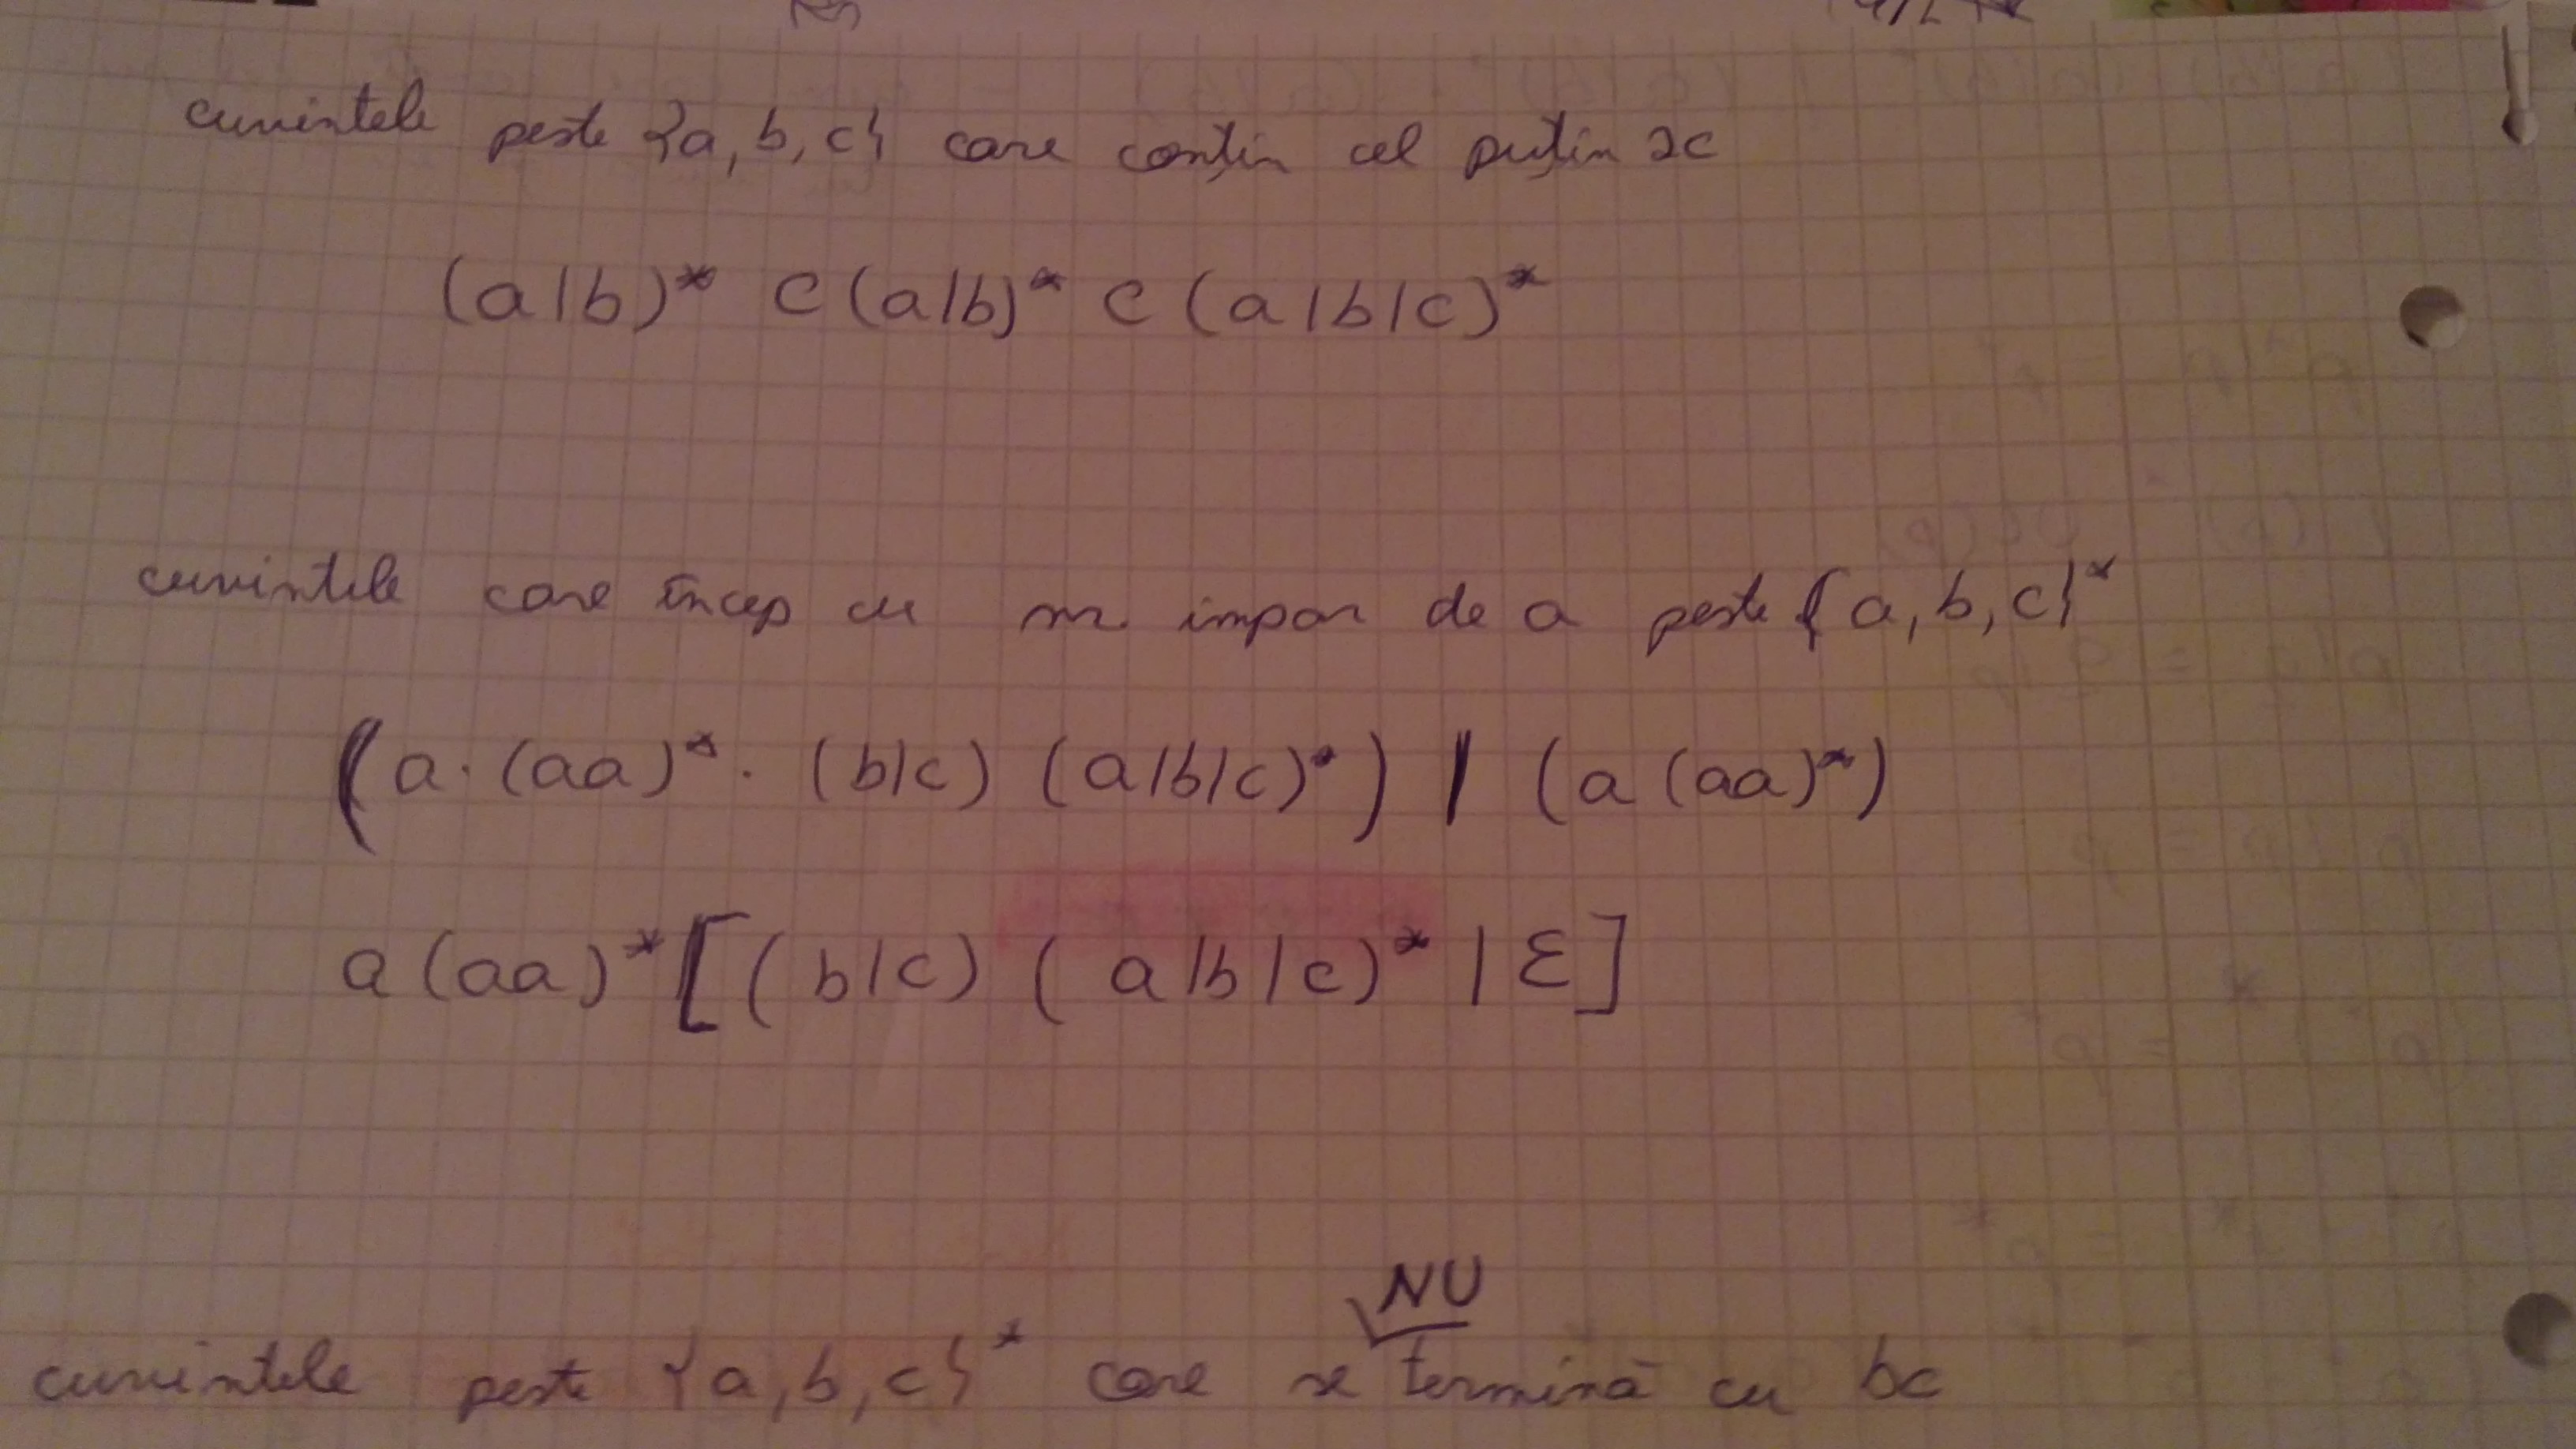 cuvintele peste {a, b, c} care conțin cel puțin 2c
(a|b)* c (a|b)* c (a|b|c)*
cuvintele care încep cu nr. impar de a peste {a, b, c}*
(a·(aa)*·(b|c) (a|b|c)*) | (a (aa)*)
a (aa)* [(b|c) (a|b|c)* | ε]
NU
cuvintele peste {a, b, c}* care se termină cu bc